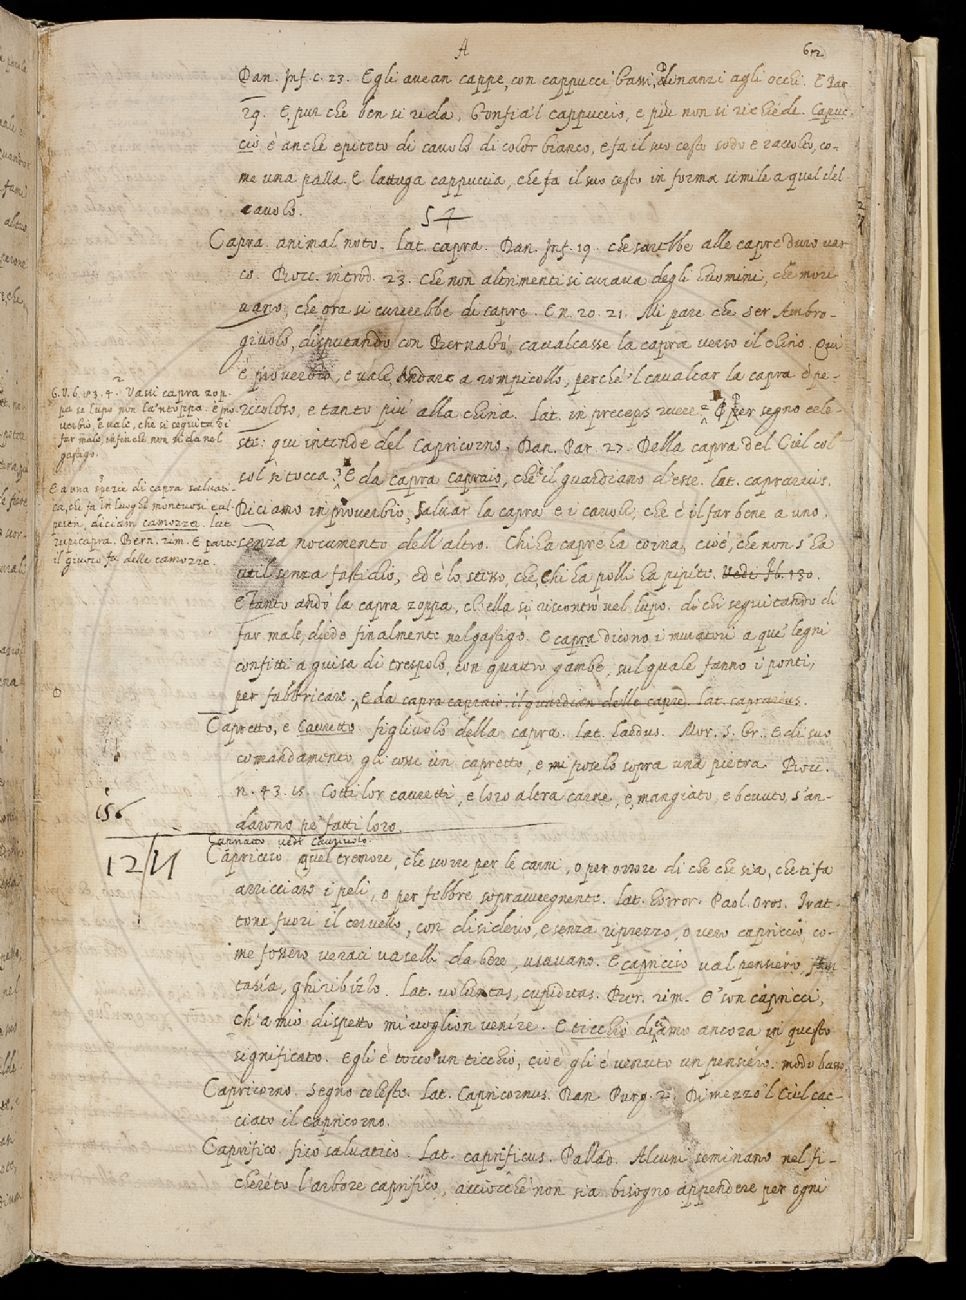 A
Dan. Inf. c. 23. Egli avean cappe, con cappucci bassi, dinanzi agli occhi. E Par.
29. E, pur che ben si rida, Gonfia 'l cappuccio, e più non si richiede. Capuc-
cio è anche epiteto di cavolo di color bianco, e fa il suo cesto sodo e raccolto, co-
me una palla. E lattuga cappuccia, che fa il suo cesto in forma simile a quel del
cavolo.
54
Capra. animal noto. Lat. capra. Dan. Inf. 19. che sarebbe alle capre duro var-
co. Bocc. introd. 23. che non altrimenti si curava degli huomini, che mori-
vano, che ora si curerebbe di capre. E n. 20. 21. Mi pare che ser Ambro-
giuolo, disputando con Bernabò cavalcasse la capra verso il chino. Qui
è proverbio, e vale, andare a rompicollo, perchè 'l cavalcar la capra è pe-
ricoloso, e tanto più alla china. Lat. in preceps ruere. per segno cele-
ste: qui intende del Capricorno, Dan. Par. 27. Della capra del Ciel col
sol si tocca. E da capra capraio, che è il guardiano d'esse. lat. caprarius.
Diciamo in proverbio, salvar la capra e i cavoli, che è il far bene a uno,
senza nocumento dell'altro. Chi ha capre ha corna, cioè, che non s'ha
util senza fastidio, ed è lo stesso, che, chi ha polli ha pipite. Vedi Fl. 130.
E tanto andò la capra zoppa, ch'ella si riscontrò nel lupo. di chi seguitando di
far male, diede finalmente nel gastigo. E capra dicono i muratori a que' legni
confitti a guisa di trespolo, con quattro gambe, sul quale fanno i ponti,
per fabbricare. E da capra capraio. il guardian delle capre. lat. caprarius.
Capretto, e Cavretto figliuolo della capra. lat. haedus. Mor. S. Gr. E di suo
comandamento, gli cosse un capretto, e poselo sopra una pietra. Bocc.
n. 43. 15. Cotti lor cavretti, e loro altra carne, e, mangiato, e bevuto, s'an-
darono pe' fatti loro.
Capriccio quel tremore, che scorre per le carni, o per orrore di che che sia, che ti fa
arricciare i peli, o per febbre sopravvegnente. Lat. horror. Paol. Oros. Trat-
tone fuori il cervello, con disiderio, e senza riprezzo, o vero capriccio, co-
me fossero veraci vaselli da bere, usavano. E capriccio val pensiero, fan-
tasia, ghiribizzo. Lat. voluntas, cupiditas. Bur. rim. E' son capricci,
Ch'a mio dispetto mi voglion venire. E ticchio diciamo ancora in questo
significato. Egli è tocco un ticchio, cioè gli è venuto un pensiero. modo basso.
Capricorno. Segno celeste. Lat. Capricornus. Dan. Purg. 2. Di mezzo 'l Ciel cac-
ciato il capricorno.
Caprifico. fico salvatico. Lat. caprificus. Pallad. Alcuni seminano nel fi-
chereto l'arbore caprifico, acciocchè non sia bisogno appendere per ogni
2
Vassi capra zop-
pa se lupo non la 'ntoppa. è pro-
verbio, e vale, che si seguita di
far male, infin che non si dà nel
gastigo.
E a una spezie di capra salvati-
ca, che fa in luoghi montuosi e al-
pestri, diciam camozza. Lat.
rupicapra. Bern. rim. E parte
il giuoco fa delle camozze.
156
12